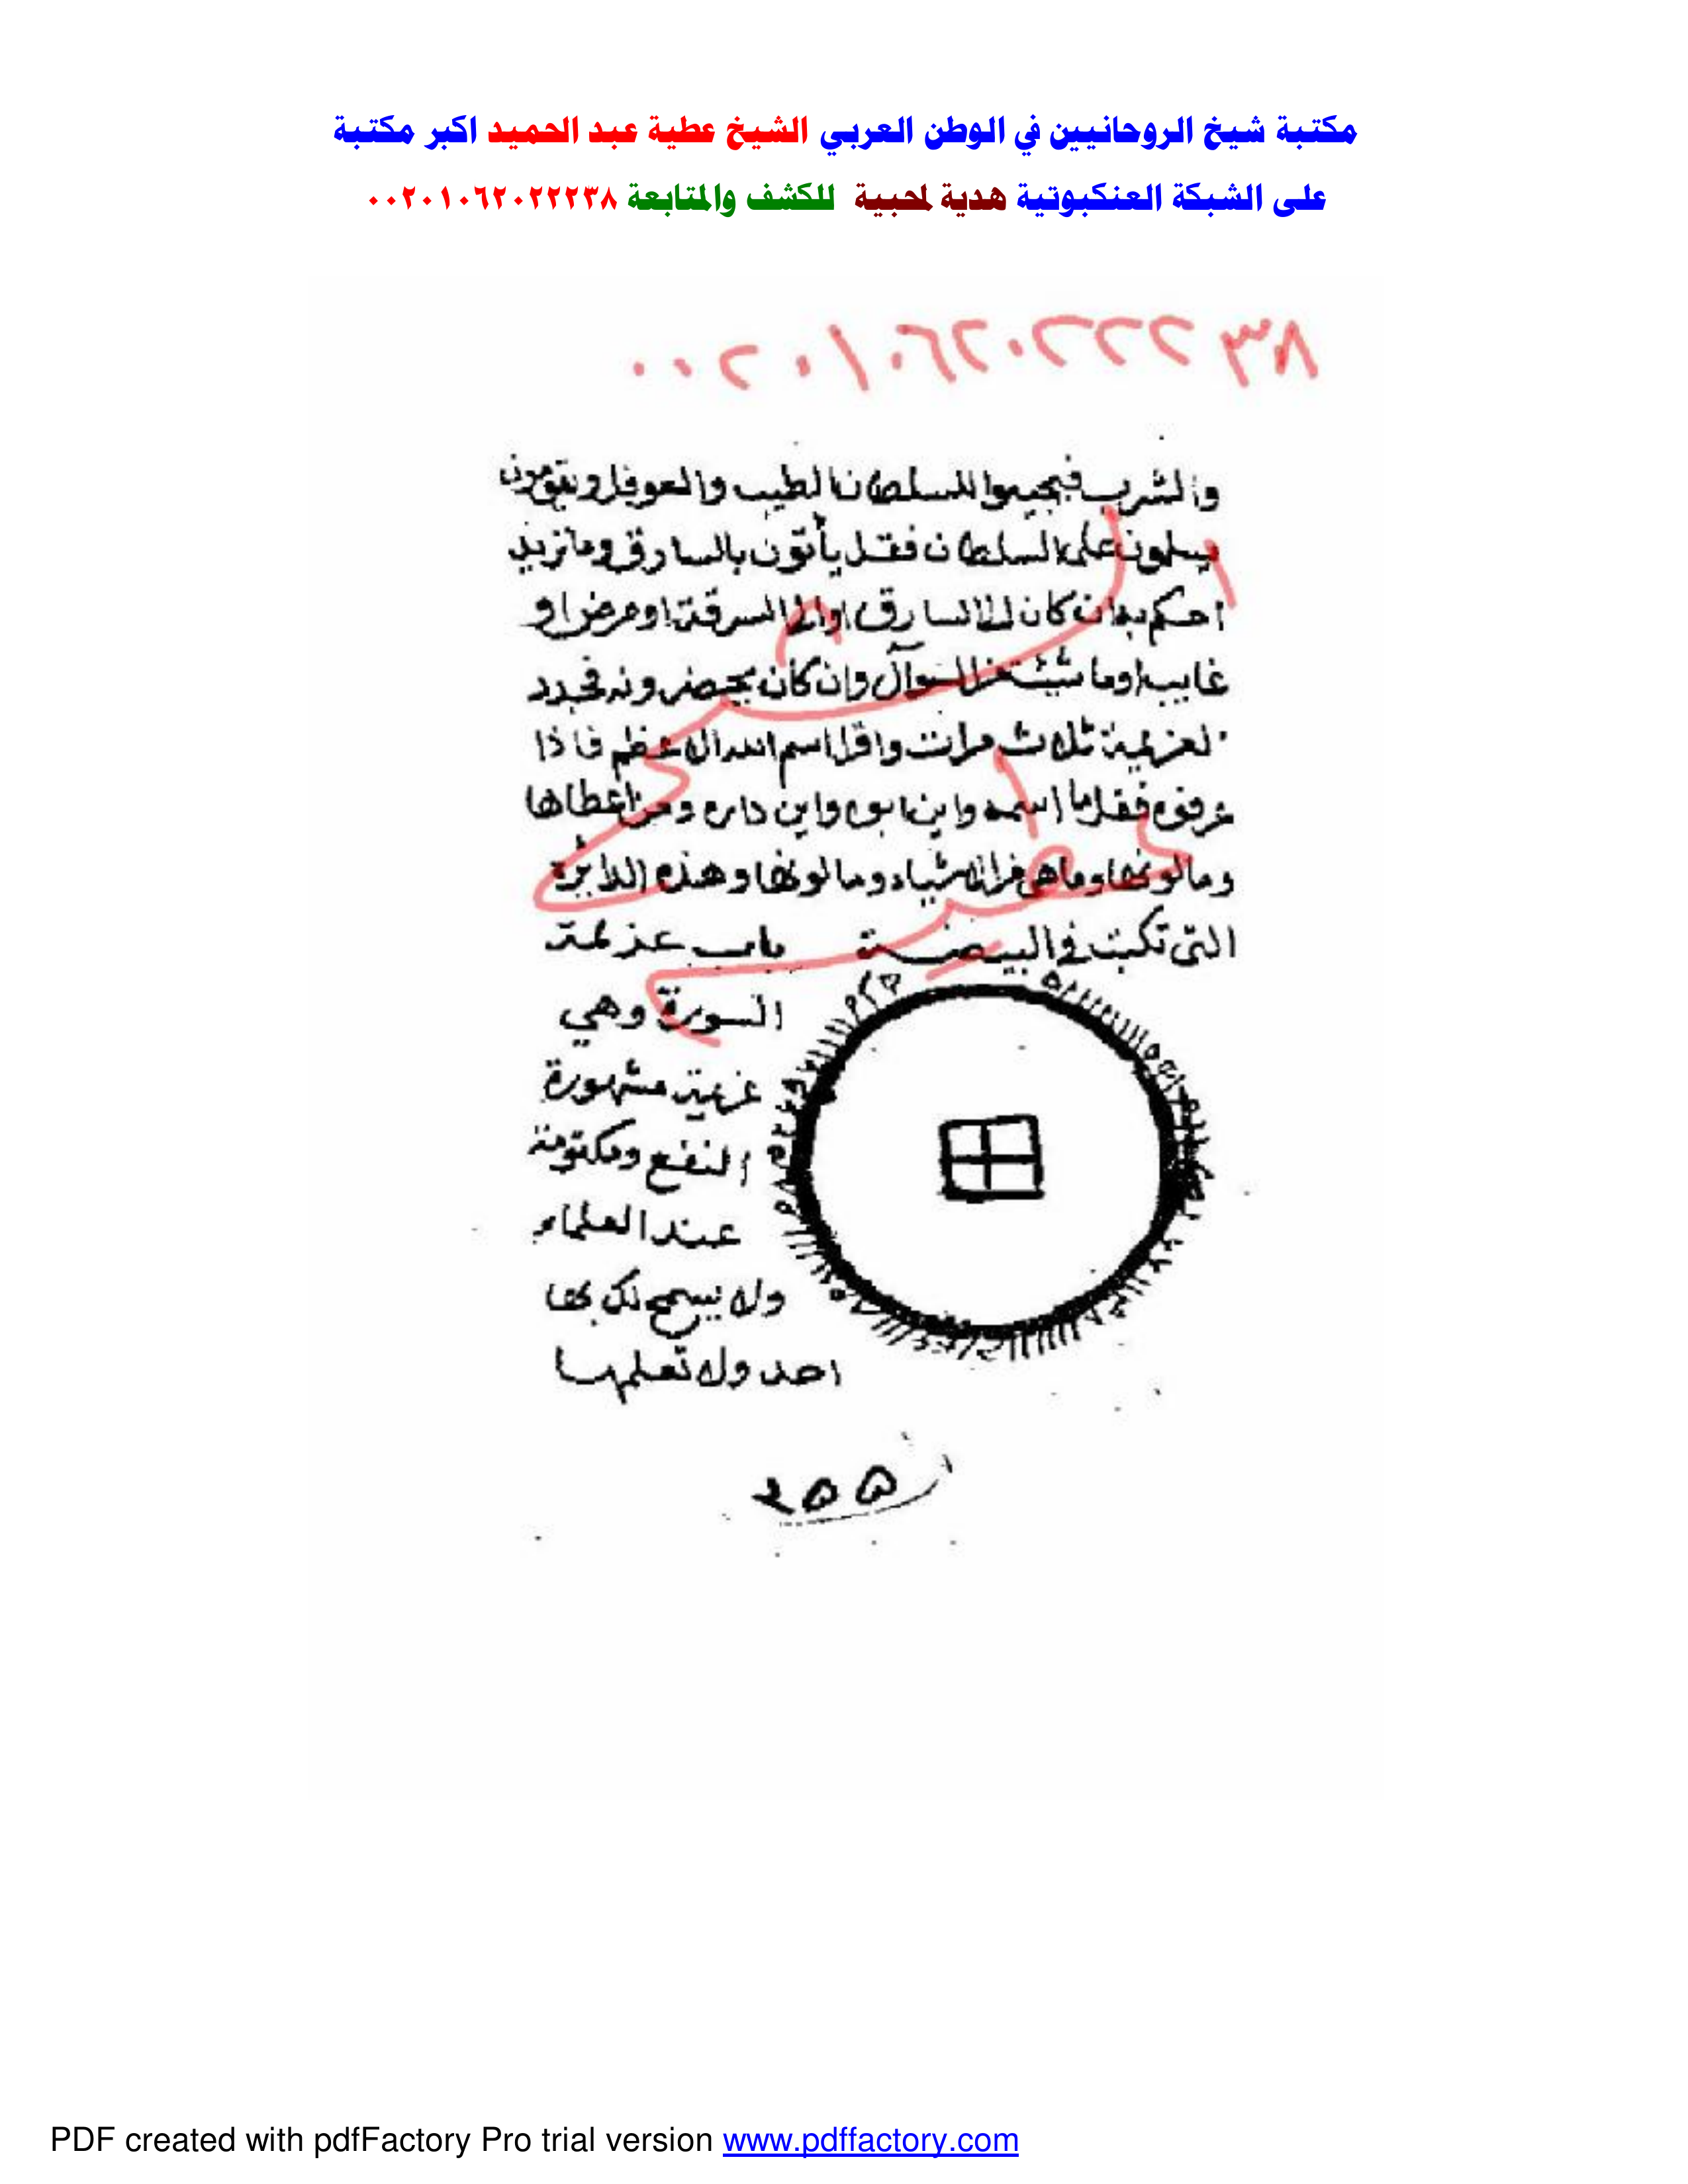 مكتبة شيخ الروحانيين في الوطن العربي الشيخ عطية عبد الحميد اكبر مكتبة
على الشبكة العنكبوتية هدية لمحبية للكشف والمتابعة ٠٠٢٠١٠٦٢٠٢٢٢٣٨
٠٠٢٠١٠٦٢٠٢٢٢٣٨
والشرب فيجيبوا للسلطان الطيب والعوفل ويتقومون
يسلمون على السلطان فقل يأتون بالسارق وما تريد
احكم به ان كان السارق او السرقة او مرض او
غايب او ما شئت من السوآل وان كان يحضرونه فجدد
العزيمة ثلاث مرات واقرا اسم الله الاعظم فاذا
عرفوه فقل ما اسمه واين ابوه واين داره ومن اعطاها
وما لونها وما هي من الاشياء وما لونها وهذه الدائرة
التي تكبت في البيضة باب عزيمة
السورة وهي
عزيمة مشهورة
النفع ومكتومة
عند العلماء
ولا يسمح لك بها
احد ولا تعلمها
٢٥٥
PDF created with pdfFactory Pro trial version www.pdffactory.com